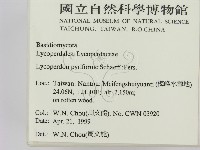 國立自然科學博物館
NATIONAL MUSEUM OF NATURAL SCIENCE
TAICHUNG, TAIWAN, R.O.CHINA
Basidiomycota
Lycoperdales, Lycoperdaceae
Lycoperdon pyriforme Schaeff.: Pers.
Loc.: Taiwan, Nantou, Meifengshuiyuan,
24.05N, 121.10E; alt. 2,150m;
on rotten wood.
Col.: W.N. Chou No. CWN 03920
Date: Apr. 21, 1999
Det.: W.N. Chou